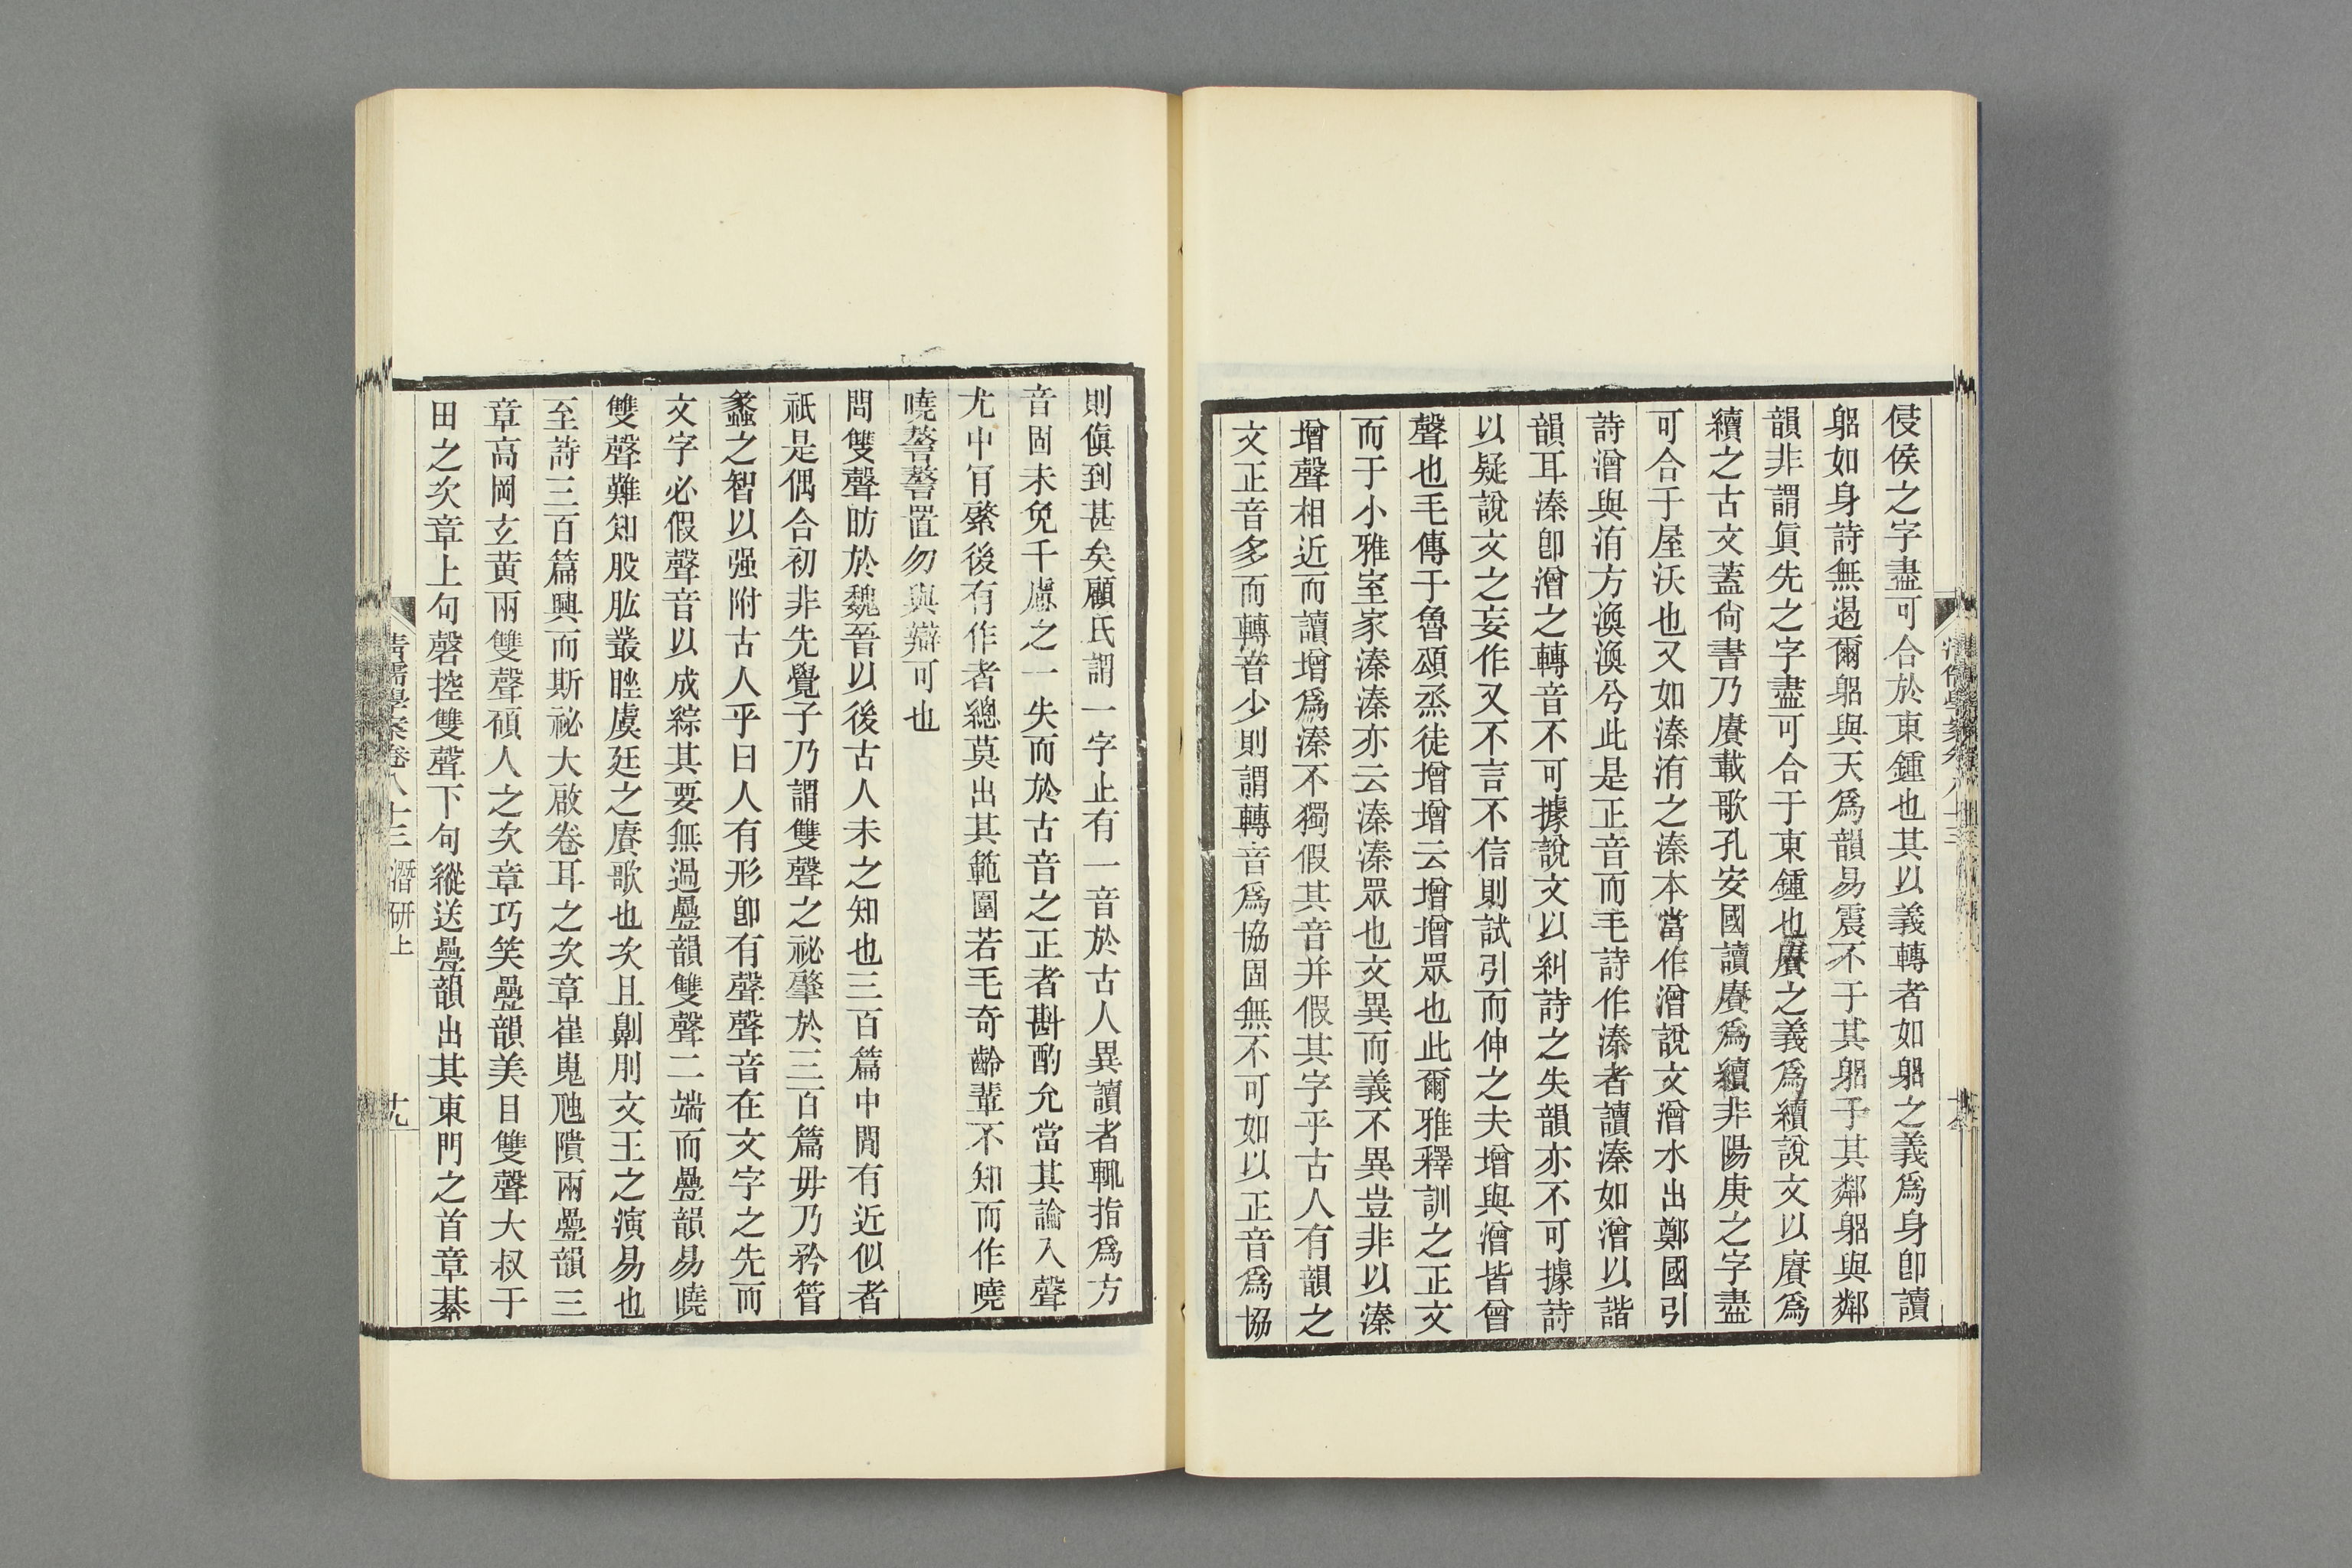 侵侯之字盡可合於東鍾也其以義轉者如躳之義爲身卽讀
躳如身詩無遏爾躳與天爲韻易震不于其躳于其鄰躳與鄰
韻非謂眞先之字盡可合于東鍾也賡之義爲續說文以賡爲
續之古文蓋尙書乃賡載歌孔安國讀賡爲續非陽庚之字盡
可合于屋沃也又如溱洧之溱本當作潧說文潧水出鄭國引
詩潧與洧方渙渙兮此是正音而毛詩作溱者讀溱如潧以諧
韻耳溱卽潧之轉音不可據說文以糾詩之失韻亦不可據詩
以疑說文之妄作又不言不信則試引而伸之夫增與潧皆曾
聲也毛傳于魯頌烝徒增增云增增眾也此爾雅釋訓之正文
而于小雅室家溱溱亦云溱溱眾也文異而義不異豈非以溱
增聲相近而讀增爲溱不獨假其音并假其字乎古人有韻之
文正音多而轉音少則謂轉音爲協固無不可如以正音爲協
則傎到甚矣顧氏謂一字止有一音於古人異讀者輒指爲方
音固未免千慮之一失而於古音之正者斟酌允當其論入聲
尤中肯綮後有作者總莫出其範圍若毛奇齡輩不知而作嘵
嘵謷謷置勿與辯可也
問雙聲昉於魏晉以後古人未之知也三百篇中閒有近似者
祇是偶合初非先覺子乃謂雙聲之祕肇於三百篇毋乃矜管
蠡之智以强附古人乎曰人有形卽有聲聲音在文字之先而
文字必假聲音以成綜其要無過疊韻雙聲二端而疊韻易曉
雙聲難知股肱叢脞虞廷之賡歌也次且劓刖文王之演易也
至詩三百篇興而斯祕大啟卷耳之次章崔嵬虺隤兩疊韻三
章高岡玄黃兩雙聲碩人之次章巧笑疊韻美目雙聲大叔于
田之次章上句磬控雙聲下句縱送疊韻出其東門之首章綦
清儒學案卷八十三 潛研上
十九